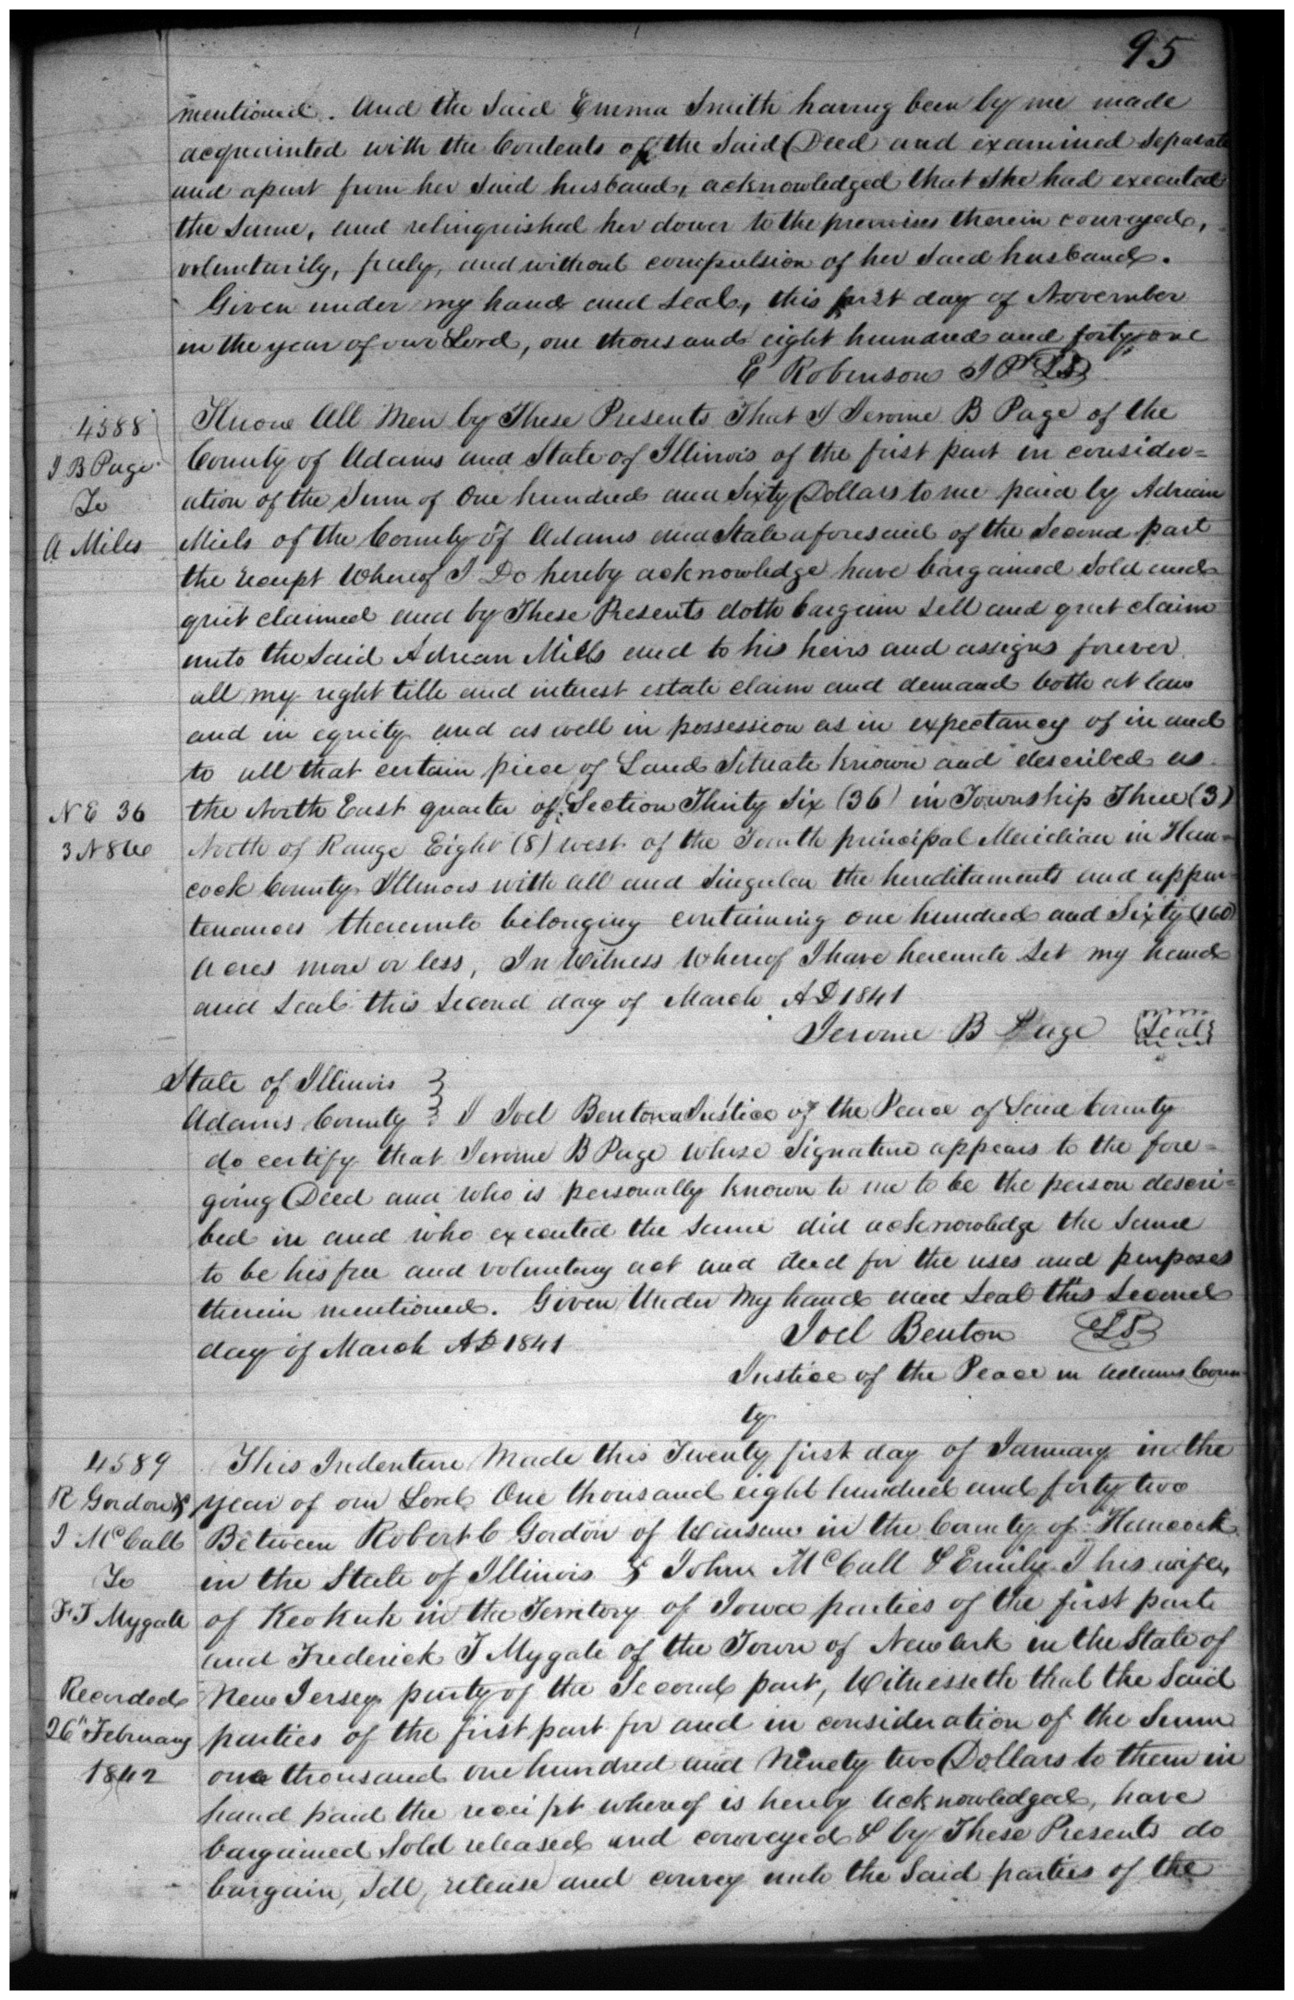 95
mentioned. And the Said Emma Smith having been by me made
acquainted with the Contents of the Said Deed and examined Separate
and apart from her Said husband, acknowledged that She had executed
the Same, and relinquished her dower to the premises therein conveyed,
voluntarily, freely, and without compulsion of her Said husband.
Given under my hand and Seal, this first day of November
in the year of our Lord, one thousand eight hundred and forty one
E Robinson J P LS
4588
J B Page
To
A Miles
Know All Men by These Presents That I Jerome B Page of the
County of Adams and State of Illinois of the first part in consider=
ation of the Sum of One hundred and Sixty Dollars to me paid by Adrian
Miels of the County of Adams and State aforesaid of the Second part
the receipt Whereof I Do hereby acknowledge have bargained Sold and
quit claimed and by These Presents doth bargain Sell and quit claim
unto the Said Adrian Mills and to his heirs and assigns forever
all my right title and interest estate claim and demand both at law
and in equity and as well in possession as in expectancy of in and
to all that certain piece of Land Situate known and described as
N E 36
3 N 8 W
the North East quarter of Section Thirty Six (36) in Township Three (3)
North of Range Eight (8) west of the Fourth principal Meridian in Han=
cock County Illinois with all and Singular the hereditaments and appur=
tenances thereunto belonging containing one hundred and Sixty (160)
Acres more or less, In Witness Whereof I have hereunto Set my hand
and Seal this Second day of March AD 1841
Jerome B Page Seal
State of Illinois }
Adams County } I Joel Benton a Justice of the Peace of Said County
do certify that Jerome B Page whose Signature appears to the fore=
going Deed and who is personally known to me to be the person descri=
bed in and who executed the Same did acknowledge the Same
to be his free and voluntary act and deed for the uses and purposes
therein mentioned. Given Under My hand and Seal this Second
day of March AD 1841 Joel Benton LS
Justice of the Peace in Adams Coun
ty
4589
R Gordon &
J McCall
To
F J Mygate
Recorded
26" February
1842
This Indenture Made this Twenty first day of January in the
year of our Lord One thousand eight hundred and forty two
Between Robert C Gordon of Warsaw in the County of Hancock
in the State of Illinois & John McCall & Emily J his wife,
of Keokuk in the Territory of Iowa parties of the first part
and Frederick J Mygate of the Town of Newark in the State of
New Jersey party of the Second part, Witnesseth that the Said
parties of the first part for and in consideration of the Sum
one thousand one hundred and Ninety two Dollars to them in
hand paid the receipt whereof is hereby Acknowledged, have
bargained Sold released and conveyed & by These Presents do
bargain, Sell, release and convey unto the Said parties of the